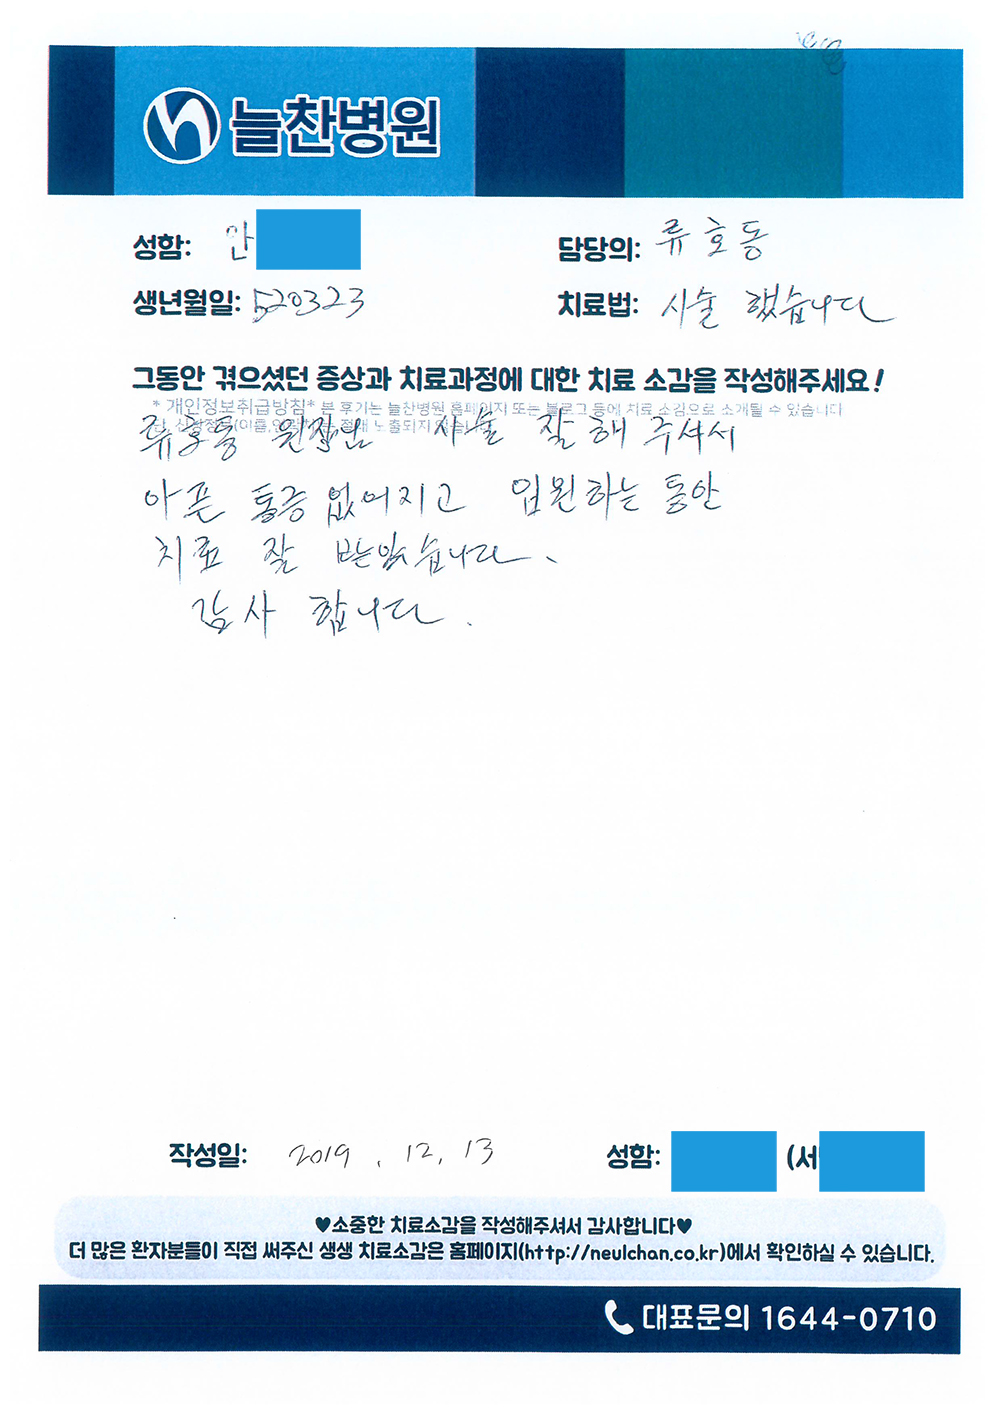 늘찬병원
성함: 안
담당의: 류호동
생년월일: 520323
치료법: 시술 했습니다
그동안 겪으셨던 증상과 치료과정에 대한 치료 소감을 작성해주세요!
* 개인정보취급방침* 본 후기는 늘찬병원 홈페이지 또는 블로그 등에 치료 소감으로 소개될 수 있습니다
단, 신상정보(이름,연락처)는 절대 노출되지 않습니다
류호동 원장님 시술 잘 해 주셔서
아픈 통증 없어지고 입원하는 동안
치료 잘 받았습니다.
감사 합니다.
작성일: 2019. 12. 13
성함: (서
♥소중한 치료소감을 작성해주셔서 감사합니다♥
더 많은 환자분들이 직접 써주신 생생 치료소감은 홈페이지(http://neulchan.co.kr)에서 확인하실 수 있습니다.
대표문의 1644-0710